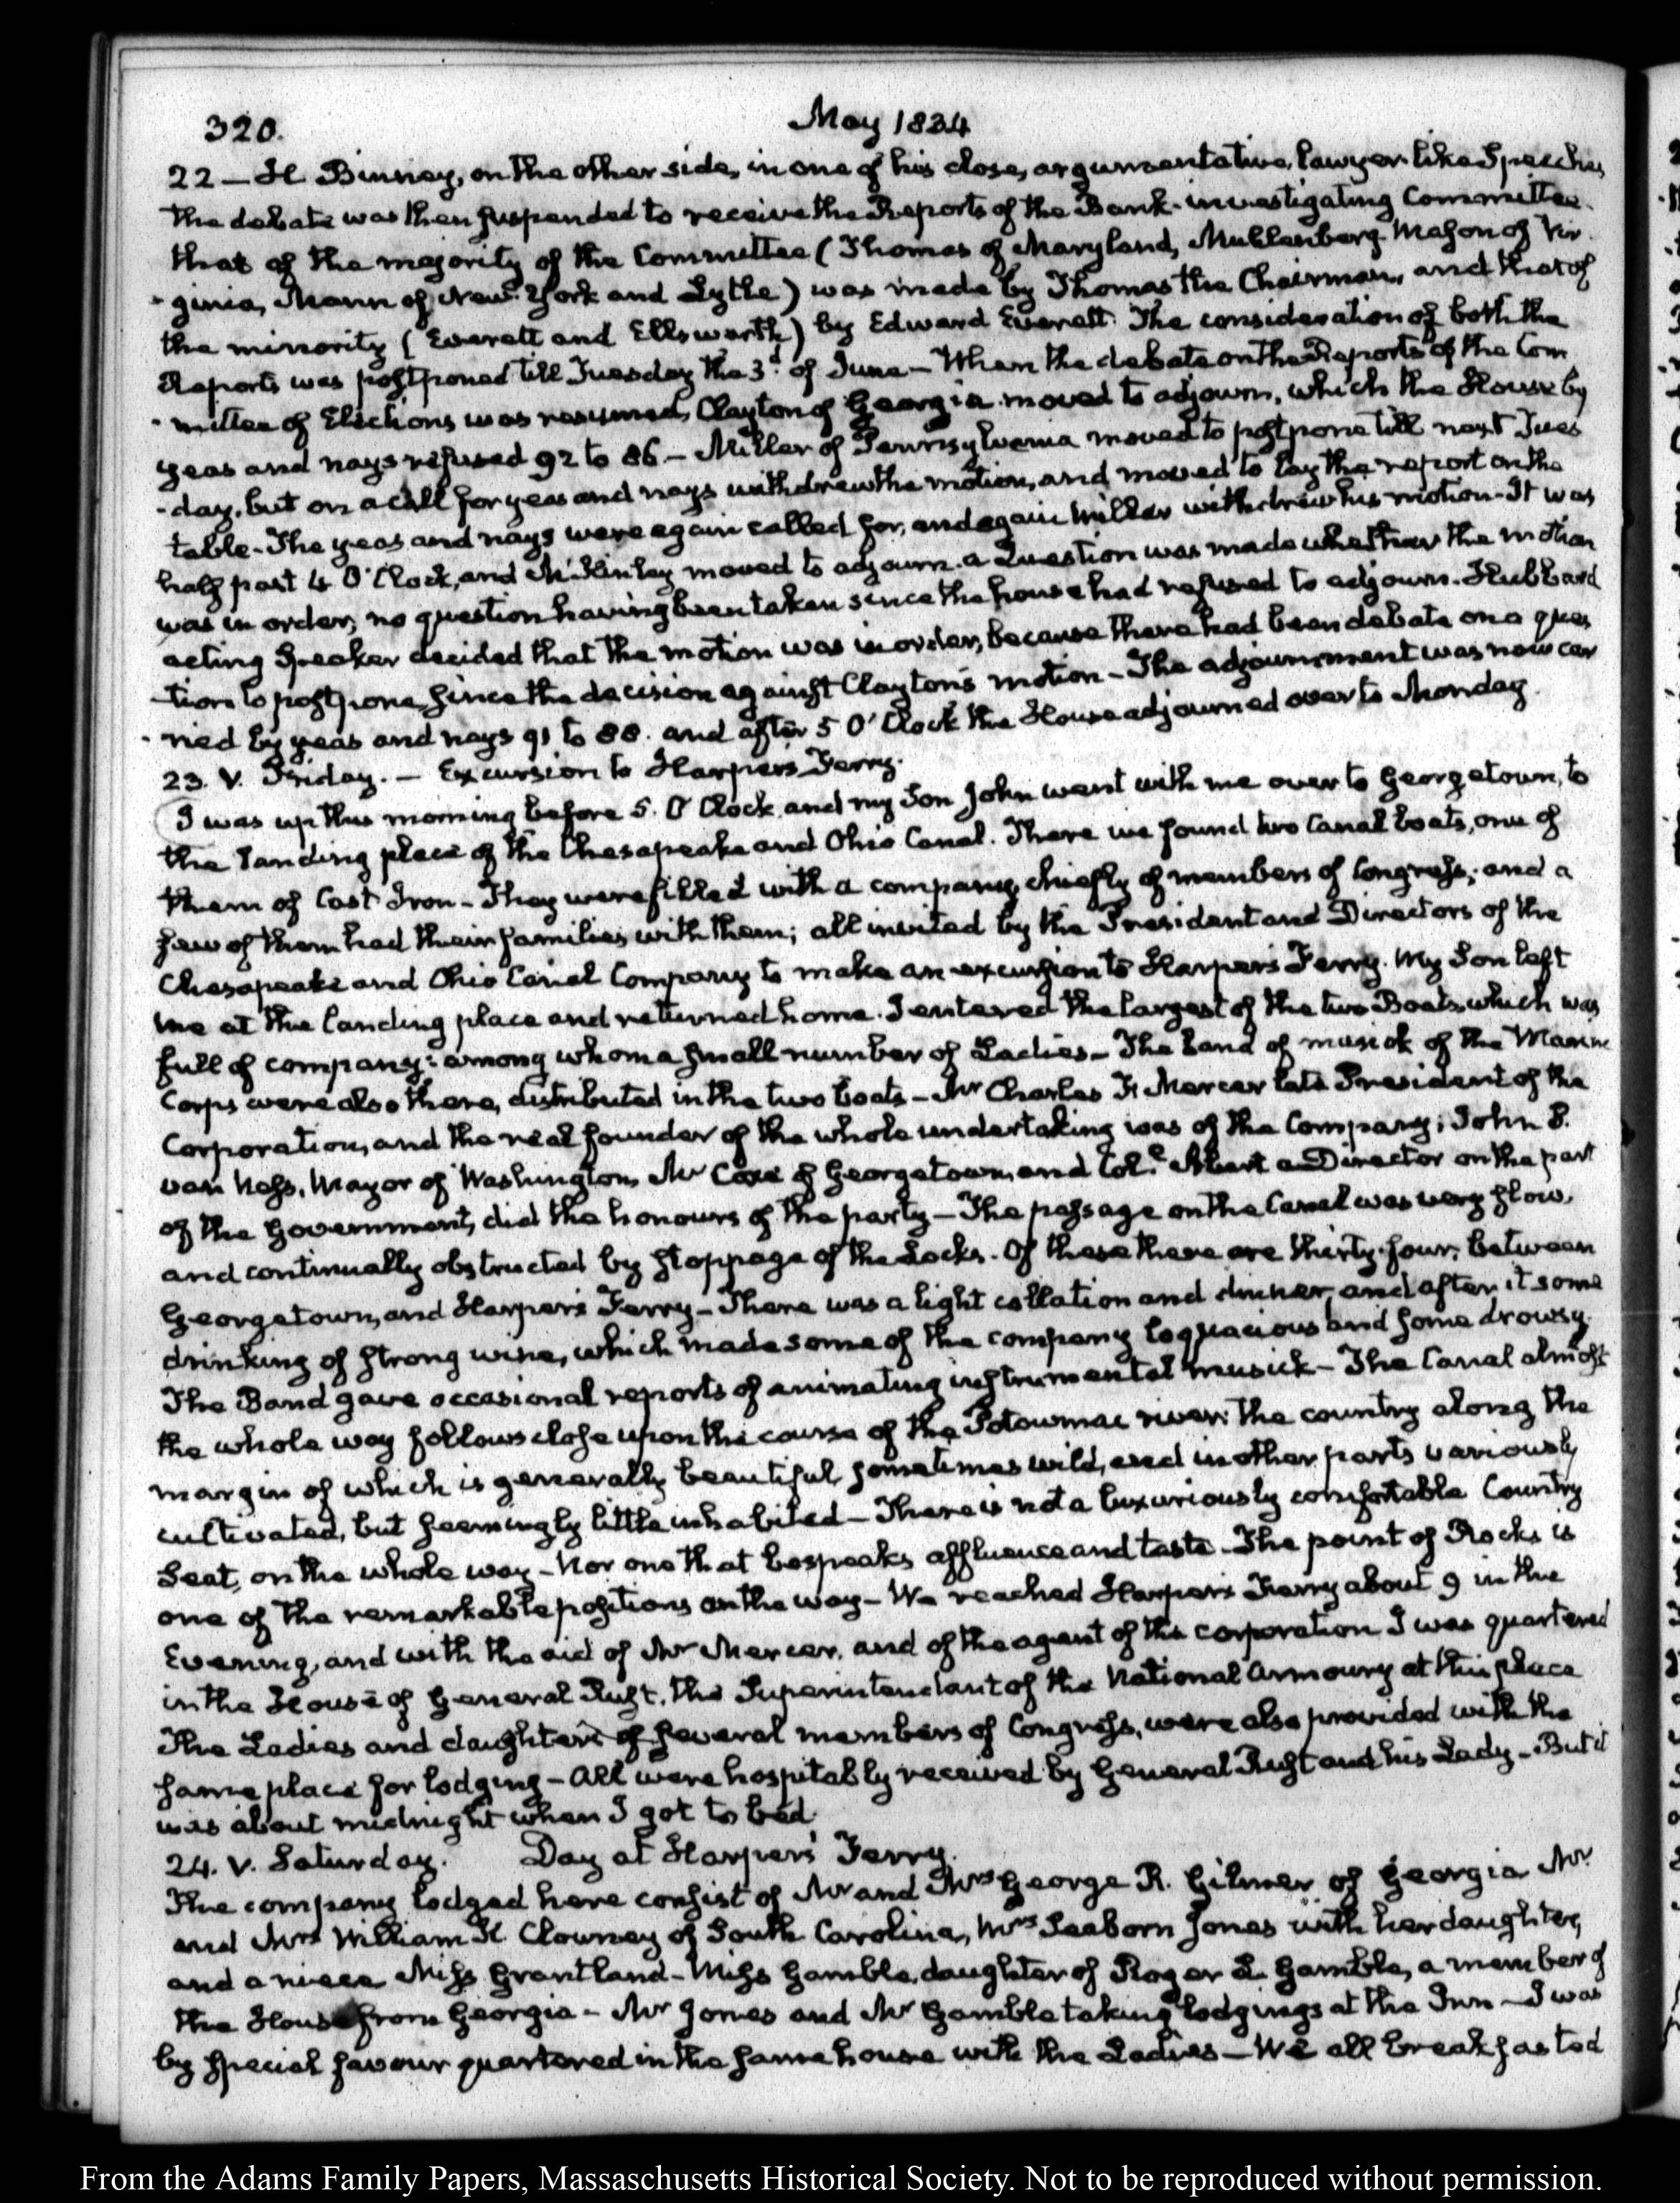 320.
May 1834
22 — H Binney, on the other side, in one of his close, argumentative, lawyer-like Speeches
The debate was then suspended to receive the Reports of the Bank-investigating Committee.
that of the majority of the Committee (Thomas of Maryland, Muhlenberg Mason of Vir-
-ginia, Mann of New-York and Lytle) was made by Thomas the Chairman, and that of
the minority (Everett and Ellsworth) by Edward Everett. The consideration of both the
Reports was postponed till Tuesday the 3d. of June — When the debate on the Reports of the Com
-mittee of Elections was resumed, Clayton of Georgia moved to adjourn, which the House by
yeas and nays refused 92 to 86 — Miller of Pennsylvania moved to postpone till next Tues
-day, but on a call for yeas and nays withdrew the motion, and moved to lay the report on the
table - The yeas and nays were again called for, and again Miller withdrew his motion - It was
half past 4 O'Clock, and McKinley moved to adjourn. a Question was made whether the motion
was in order, no question having been taken since the house had refused to adjourn. Hubbard
acting Speaker decided that the motion was in order, because there had been debate on a ques
-tion to postpone, since the decision against Clayton's motion - The adjournment was now car
-ried by yeas and nays 91 to 88. and after 5 O'Clock the House adjourned over to Monday.
23. V. Friday. — Excursion to Harper's Ferry.
I was up this morning before 5. O'Clock, and my Son John went with me over to Georgetown, to
the landing place of the Chesapeake and Ohio Canal. There we found two Canal boats, one of
them of Cast Iron - They were filled with a company, chiefly of members of Congress; and a
few of them had their families with them; all invited by the President and Directors of the
Chesapeake and Ohio Canal Company to make an excursion to Harper's Ferry. My Son left
me at the landing place and returned home. I entered the largest of the two Boats, which was
full of company: among whom a small number of Ladies - The band of musick of the Marine
Corps were also there, distributed in the two boats - Mr Charles F. Mercer late President of the
Corporation, and the real founder of the whole undertaking was of the Company; John P.
van Ness, Mayor of Washington, Mr Cox of Georgetown, and Coll. Abert a Director on the part
of the Government, did the honours of the party — The passage on the Canal was very slow,
and continually obstructed by stoppage of the Locks. Of these there are thirty-four, between
Georgetown, and Harper's Ferry - There was a light collation and dinner, and after it some
drinking of strong wine, which made some of the company loquacious and some drowsy.
The Band gave occasional reports of animating instrumental musick - The Canal almost
the whole way follows close upon the course of the Potowmac river: the country along the
margin of which is generally beautiful sometimes wild, and in other parts variously
cultivated, but seemingly little inhabited — There is not a luxuriously comfortable Country
Seat, on the whole way - Nor one that bespeaks affluence and taste. The point of Rocks is
one of the remarkable positions on the way - We reached Harper's Ferry about 9 in the
Evening, and with the aid of Mr Mercer, and of the agent of the corporation I was quartered
in the House of General Rust, the Superintendant of the National Armoury at this place
The Ladies and daughters of several members of Congress, were also provided with the
same place for lodging — All were hospitably received by General Rust and his Lady - But it
was about midnight when I got to bed.
24. V. Saturday. Day at Harper's Ferry.
The company lodged here consist of Mr and Mrs George R. Gilmer of Georgia Mr
and Mrs William K Clowney of South Carolina, Mrs Seaborn Jones with her daughter,
and a niece Miss Grantland - Miss Gamble, daughter of Roger L. Gamble, a member of
the House from Georgia - Mr Jones and Mr Gamble taking lodgings at the Inn — I was
by special favour quartered in the same house with the Ladies — We all breakfasted
From the Adams Family Papers, Massachusetts Historical Society. Not to be reproduced without permission.